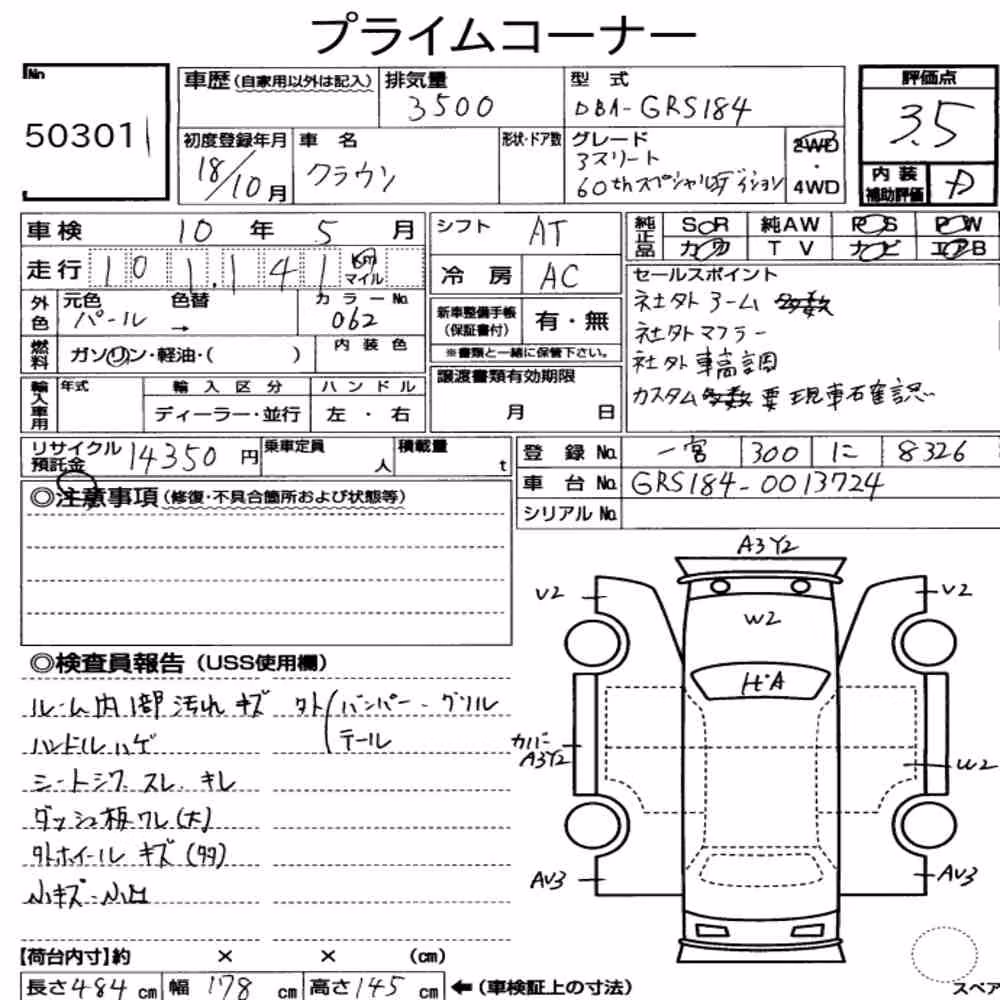 プライムコーナー
No
50301
車歴(自家用以外は記入) 排気量 型 式 評価点
3500 DBA-GRS184 3.5
初度登録年月 車 名 形状・ドア数 グレード 2WD・4WD
18/10月 クラウン 3スリート
60thスペシャルエディション
内装補助評価 D
車検 10年 5月 シフト AT 純正品 SR 純AW PS PW
走行 101,141 km マイル 冷房 AC カワ TV ナビ エアB
外色 元色 色替 カラーNo. 新車整備手帳(保証書付) 有・無 セールスポイント
パール → 062 社外アーム
※書類と一緒に保管下さい。 社外マフラー
燃料 ガソリン・軽油・( ) 内装色 社外車高調
輸入車用 年式 輸入区分 ハンドル 譲渡書類有効期限 カスタム多数要現車確認
ディーラー・並行 左・右 月 日
リサイクル預託金 14350円 乗車定員 人 積載量 t 登録No. 一宮 300 に 8326
車台No. GRS184-0013724
シリアルNo.
◎注意事項(修復・不具合箇所および状態等)
A3Y2
V2 V2
W2
◎検査員報告(USS使用欄)
ルーム内1部汚れキズ 外(バンパー・グリル
H・A
ハンドルハゲ テール
カバーA3Y2 W2
シートシワ スレ・キレ
ダッシュ板ワレ(大)
外ホイールキズ(多)
小キズ・小凹
AV3 AV3
【荷台内寸】約 × × (cm)
長さ484cm 幅178cm 高さ145cm ←(車検証上の寸法) スペア